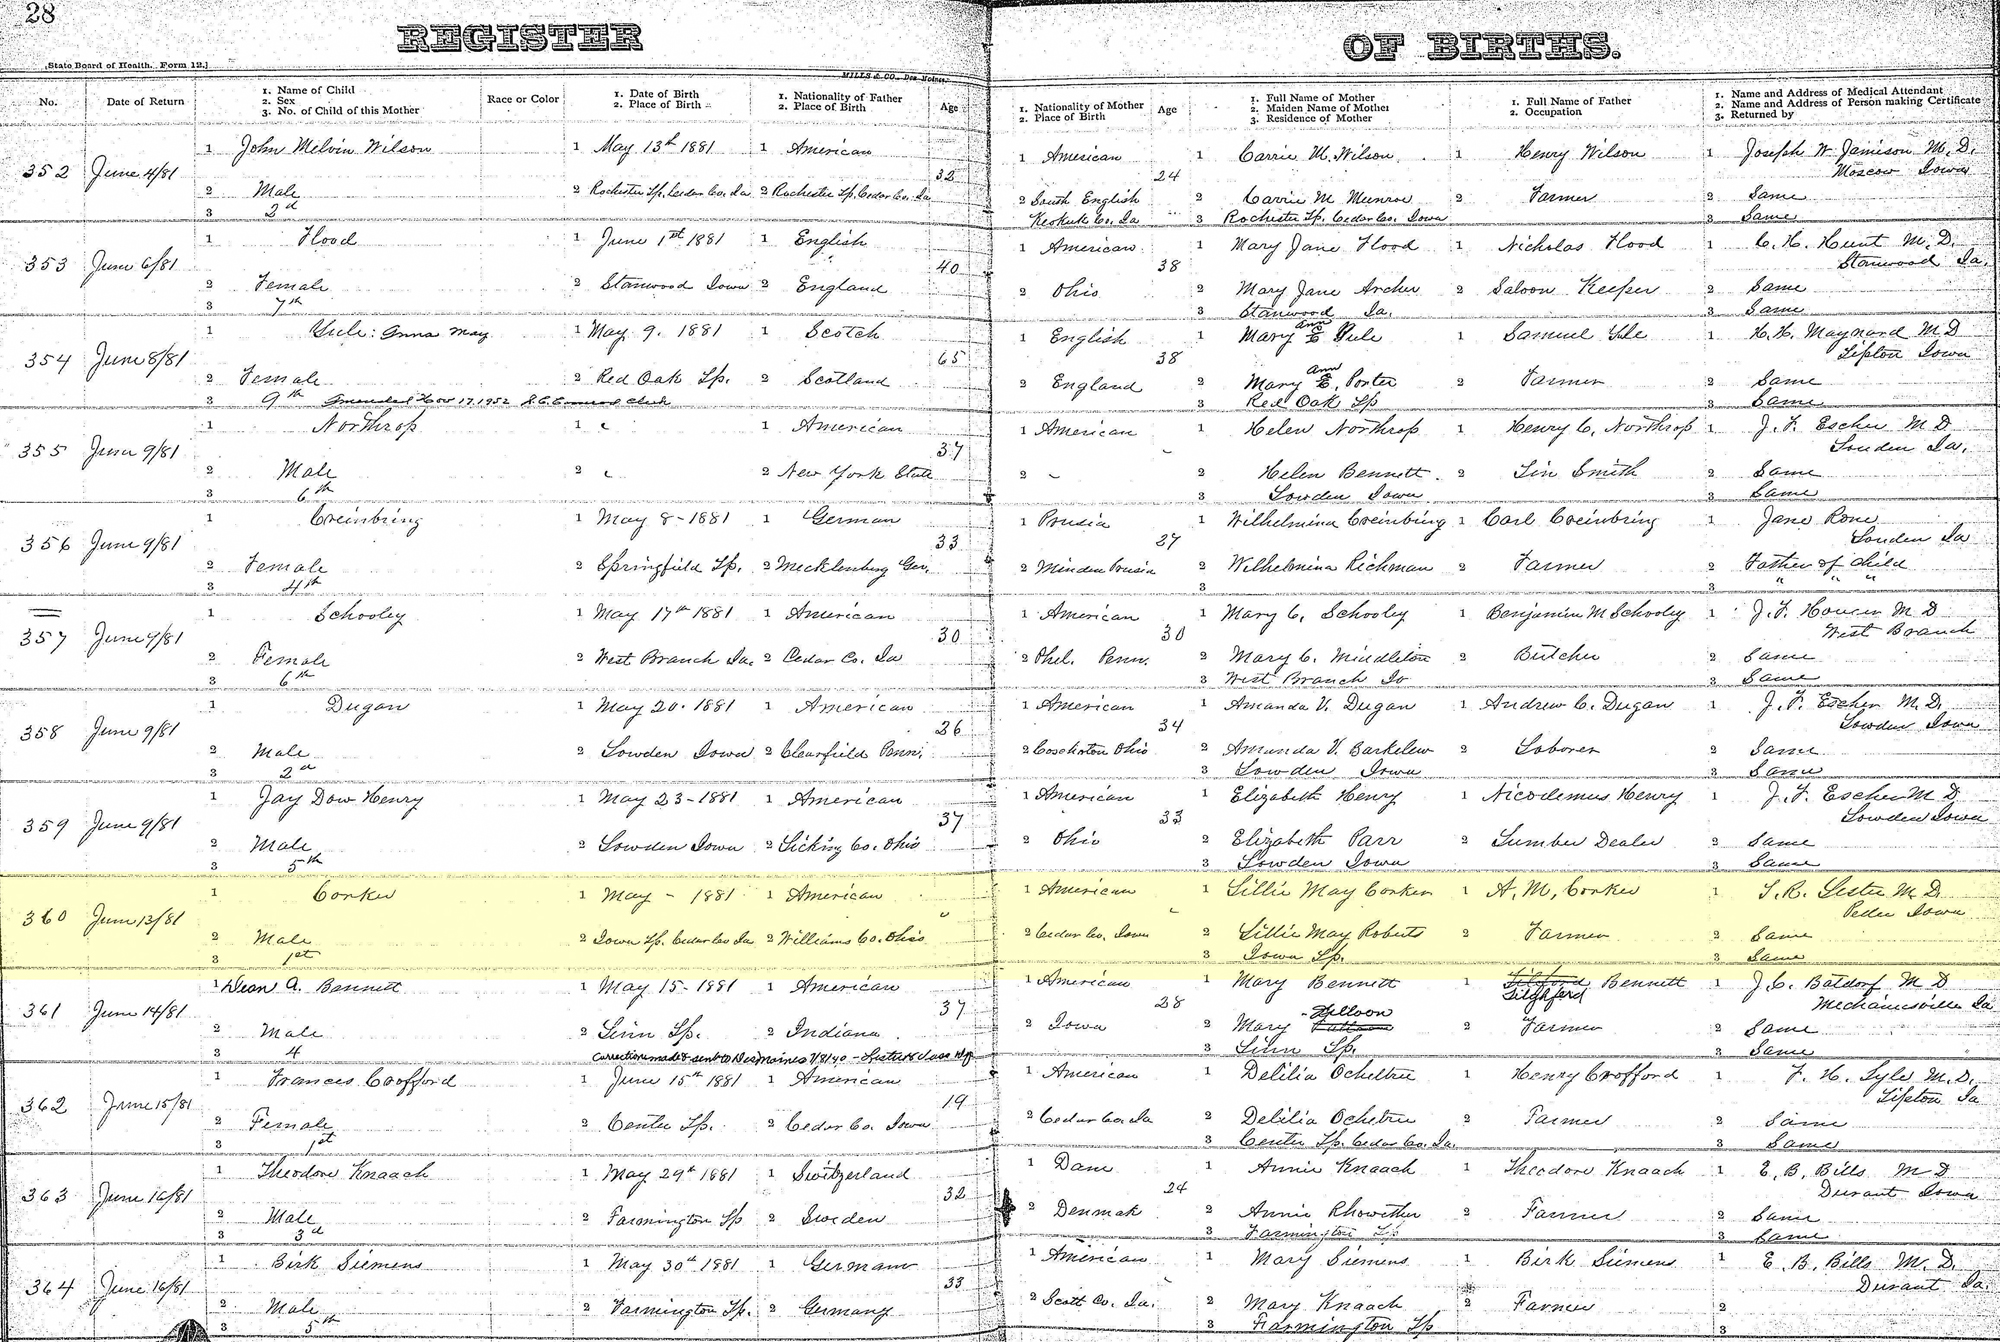 28
REGISTER OF BIRTHS.
State Board of Health. Form 12.]
MILLS & CO., Des Moines.
No. Date of Return 1. Name of Child 2. Sex 3. No. of Child of this Mother Race or Color 1. Date of Birth 2. Place of Birth 1. Nationality of Father 2. Place of Birth Age 1. Nationality of Mother 2. Place of Birth Age 1. Full Name of Mother 2. Maiden Name of Mother 3. Residence of Mother 1. Full Name of Father 2. Occupation 1. Name and Address of Medical Attendant 2. Name and Address of Person making Certificate 3. Returned by
352 June 4/81 1 John Melvin Wilson 1 May 13th 1881 1 American 32 1 American 24 1 Carrie M. Wilson 1 Henry Wilson 1 Joseph W Jamison M.D. Moscow Iowa
2 Male 2 Rochester Tp. Cedar Co. Ia 2 Rochester Tp. Cedar Co. Ia 2 South English Keokuk Co. Ia 2 Carrie M Munroe 2 Farmer 2 Same
3 2d 3 Rochester Tp. Cedar Co. Iowa 3 Same
353 June 6/81 1 Flood 1 June 1st 1881 1 English 40 1 American 38 1 Mary Jane Flood 1 Nicholas Flood 1 C. H. Hunt M.D. Stanwood Ia.
2 Female 2 Stanwood Iowa 2 England 2 Ohio 2 Mary Jane Archer 2 Saloon Keeper 2 Same
3 7th 3 Stanwood Ia. 3 Same
354 June 8/81 1 Yule: Anna May 1 May 9. 1881 1 Scotch 65 1 English 38 1 Mary Ann E Yule 1 Samuel Yule 1 H. H. Maynard M D Tipton Iowa
2 Female 2 Red Oak Tp. 2 Scotland 2 England 2 Mary Ann E. Porter 2 Farmer 2 Same
3 9th Amended Nov 17. 1952 Clerk 3 Red Oak Tp 3 Same
355 June 9/81 1 Northrop 1 1 American 37 1 American 1 Helen Northrop 1 Henry C. Northrop 1 J. F. Escher M D Lowden Ia.
2 Male 2 2 New York State 2 - 2 Helen Bennett 2 Tin Smith 2 Same
3 6th 3 Lowden Iowa 3 Same
356 June 9/81 1 Creinbring 1 May 8-1881 1 German 33 1 Prusia 27 1 Wilhelmina Creinbring 1 Carl Creinbring 1 Jane Rone Louden Ia
2 Female 2 Springfield Tp. 2 Mecklenburg Ger. 2 Minden Prusia 2 Wilhelmina Richman 2 Farmer 2 Father of child
3 4th 3 3 " " "
357 June 9/81 1 Schooley 1 May 17th 1881 1 American 30 1 American 30 1 Mary C. Schooley 1 Benjamin M Schooley 1 J. F. M D West Branch
2 Female 2 West Branch Ia. 2 Cedar Co. Ia 2 Phil. Penn. 2 Mary C. Middleton 2 Butcher 2 Same
3 6th 3 West Branch Io 3 Same
358 June 9/81 1 Dugan 1 May 20. 1881 1 American 36 1 American 34 1 Amanda V. Dugan 1 Andrew C. Dugan 1 J. F. Escher M.D. Lowden Iowa
2 Male 2 Lowden Iowa 2 Clearfield Penn. 2 Coschoton Ohio 2 Amanda V. Barkelew 2 Laborer 2 Same
3 2d 3 Lowden Iowa 3 Same
359 June 9/81 1 Jay Dow Henry 1 May 23-1881 1 American 37 1 American 33 1 Elizabeth Henry 1 Nicodemus Henry 1 J. F. Escher M D Lowden Iowa
2 Male 2 Lowden Iowa 2 Licking Co. Ohio 2 Ohio 2 Elizabeth Parr 2 Lumber Dealer 2 Same
3 5th 3 Lowden Iowa 3 Same
360 June 13/81 1 Conker 1 May - 1881 1 American 1 American 1 Lillie May Conker 1 A. M. Conker 1 Lester M D. Pedee Iowa
2 Male 2 Iowa Tp. Cedar Co Ia 2 Williams Co. Ohio 2 Cedar Co. Iowa 2 Lillie May Roberts 2 Farmer 2 Same
3 1st 3 Iowa Tp. 3 Same
361 June 14/81 1 Dean A. Bennett 1 May 15-1881 1 American 37 1 American 28 1 Mary Bennett 1 Tilford Bennett Tilghford 1 J. C. Batdorf M D Mechanicsville Ia
2 Male 2 Linn Tp. 2 Indiana 2 Iowa 2 Mary 2 Farmer 2 Same
3 4 Correction made & sent to Des Moines 3 Linn Tp. 3 Same
362 June 15/81 1 Frances Crofford 1 June 15th 1881 1 American 19 1 American 1 Delilia Ocheltree 1 Henry Crofford 1 F. H. Lyle M.D. Tipton Ia
2 Female 2 Center Tp. 2 Cedar Co. Iowa 2 Cedar Co. Ia 2 Delilia Ocheltree 2 Farmer 2 Same
3 1st 3 Center Tp. Cedar Co. Ia. 3 Same
363 June 16/81 1 Theodore Knaach 1 May 29th 1881 1 Switzerland 32 1 Dane 24 1 Annie Knaach 1 Theodore Knaach 1 E. B. Bills M D Durant Iowa
2 Male 2 Farmington Tp 2 Sweden 2 Denmak 2 Annie Rhowether 2 Farmer 2 Same
3 3d 3 Farmington Tp 3 Same
364 June 16/81 1 Birk Siemens 1 May 30th 1881 1 German 33 1 American 1 Mary Siemens 1 Birk Siemens 1 E. B. Bills M. D. Durant Ia.
2 Male 2 Farmington Tp. 2 Germany 2 Scott Co. Ia. 2 Mary Knaach 2 Farmer 2
3 5th 3 Farmington Tp 3